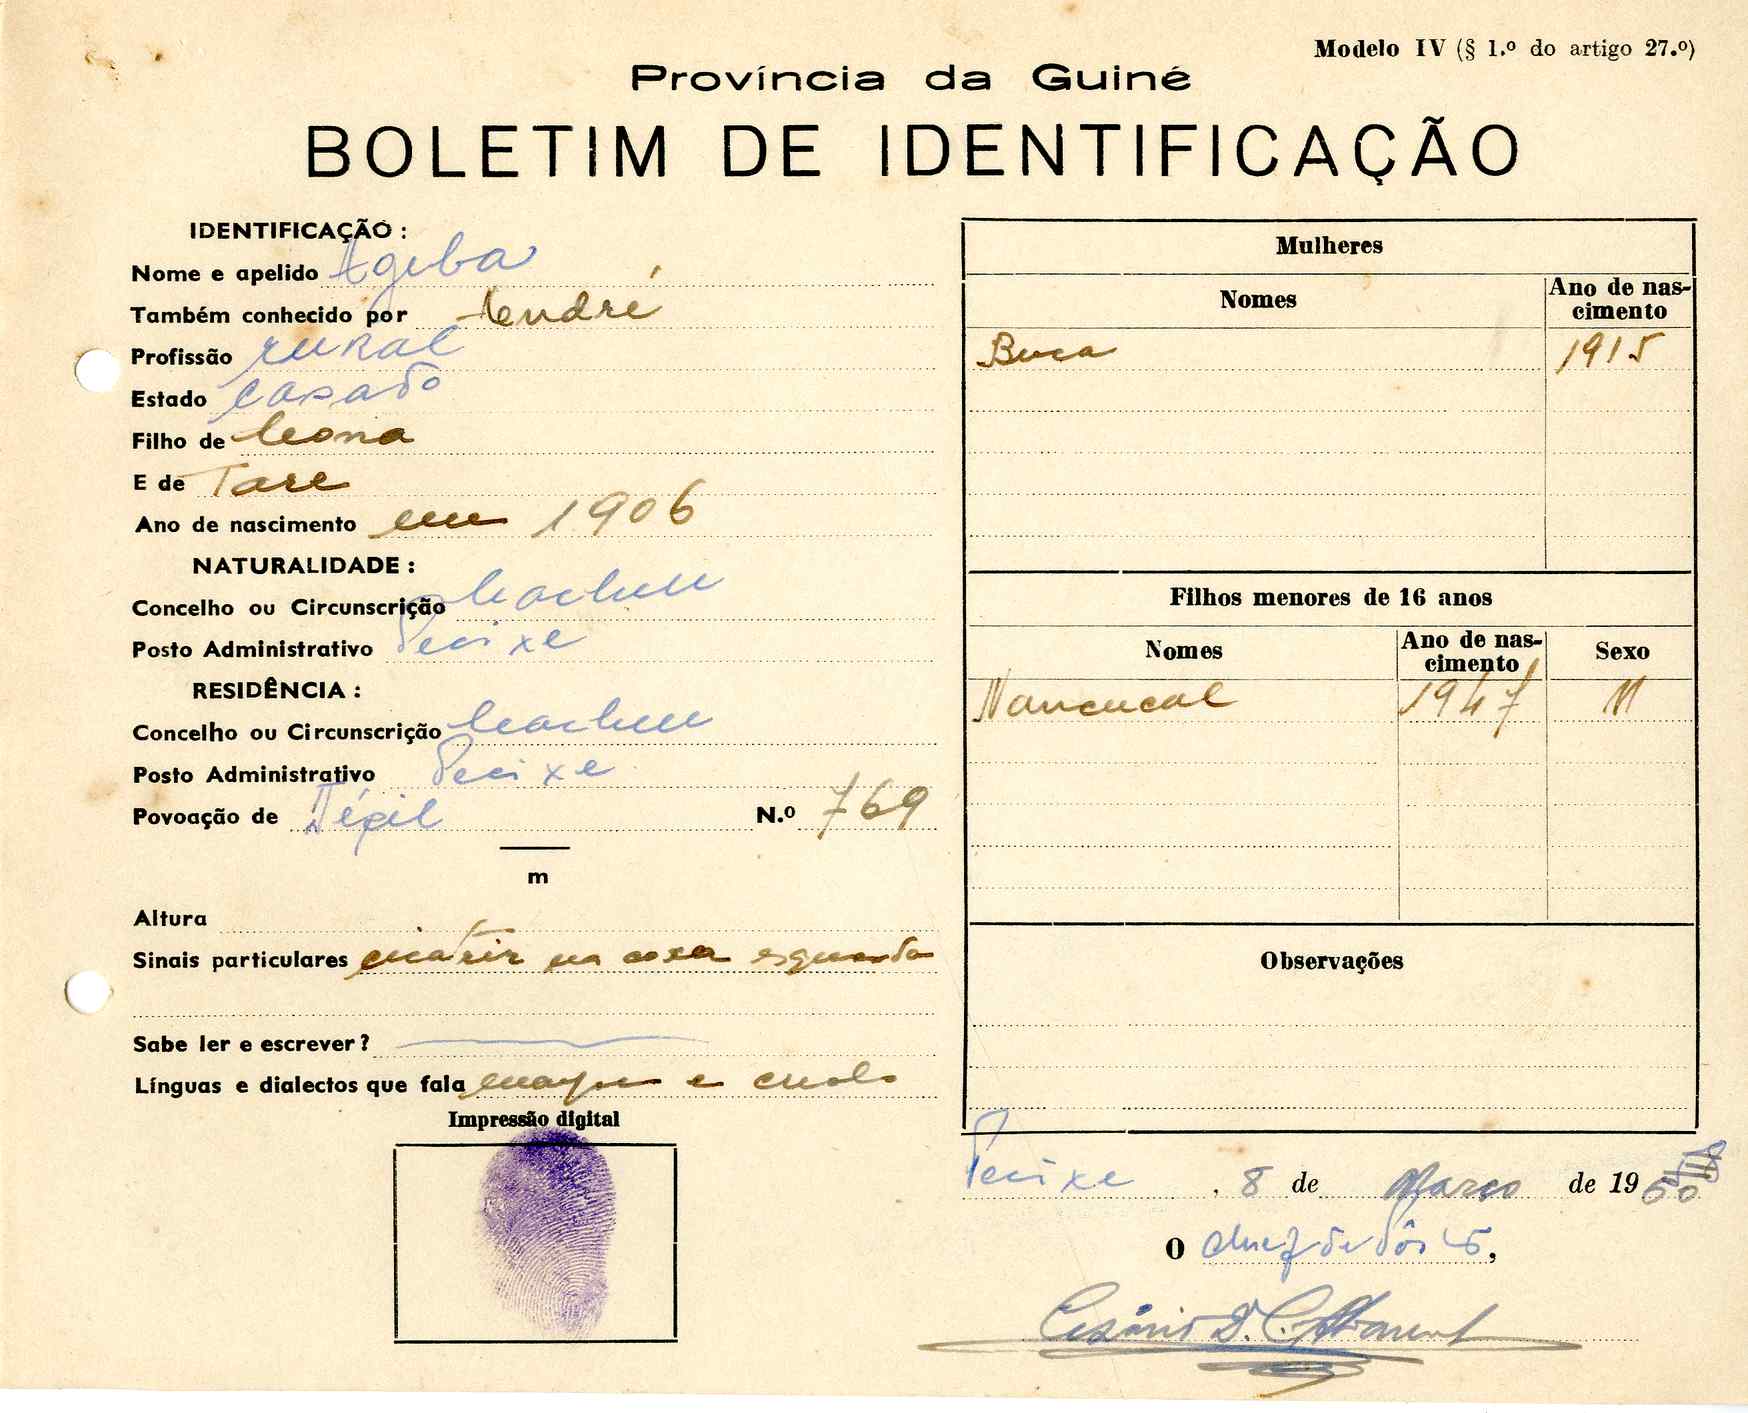 Modelo IV (§ 1.º do artigo 27.º)
Província da Guiné
BOLETIM DE IDENTIFICAÇÃO
IDENTIFICAÇÃO :
Nome e apelido Ageba
Também conhecido por André
Profissão rural
Estado casado
Filho de
E de Tare
Ano de nascimento em 1906
NATURALIDADE :
Concelho ou Circunscrição Cacheu
Posto Administrativo Pecixe
RESIDÊNCIA :
Concelho ou Circunscrição Cacheu
Posto Administrativo Pecixe
Povoação de N.º 769
m
Altura
Sinais particulares cicatriz na coxa esquerda
Sabe ler e escrever?
Línguas e dialectos que fala e
Impressão digital
Mulheres
Nomes Ano de nas-
cimento
Buca 1915
Filhos menores de 16 anos
Nomes Ano de nas-
cimento Sexo
Nancucal 1947 M
Observações
Pecixe, 8 de Março de 19
O chefe de Pôsto,